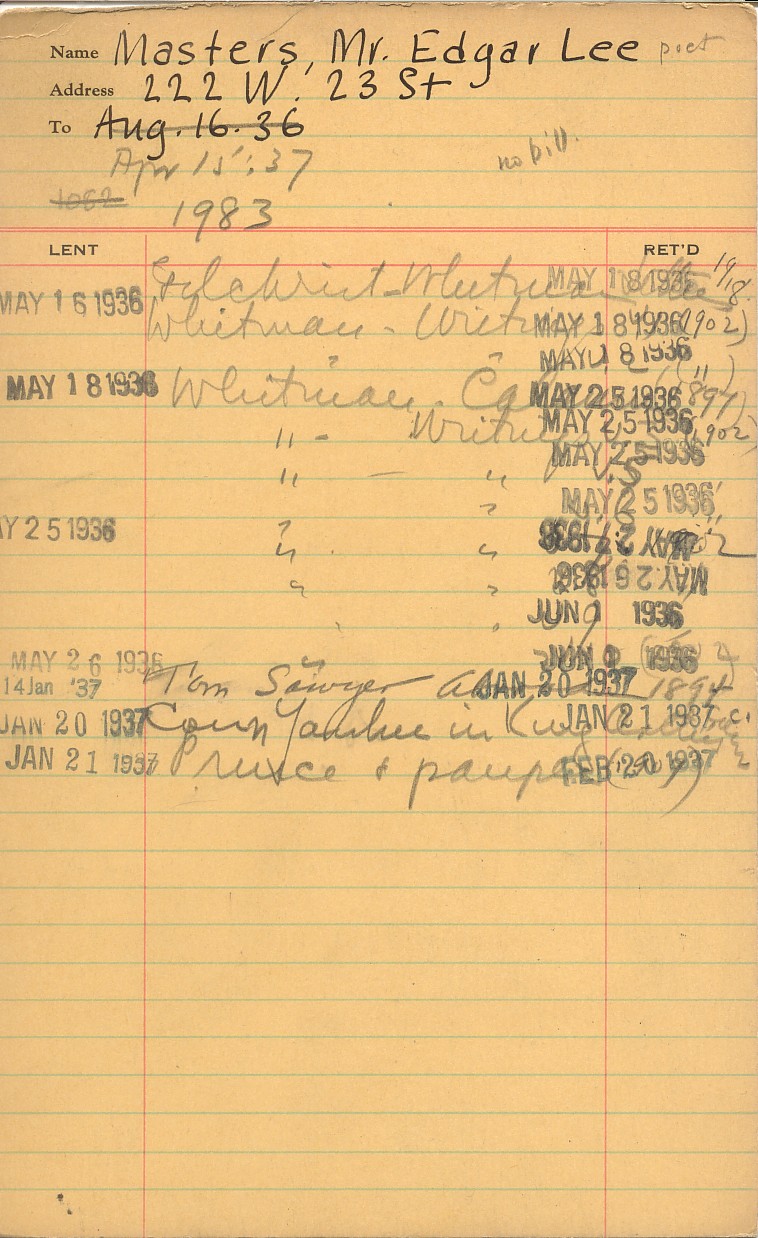 Name Masters, Mr. Edgar Lee poet
Address 222 W. 23 St
To Aug. 16. 36
Apr 15, '37 no bill.
1082
1983
LENT RET'D
MAY 16 1936 Gilchrist - Whitman MAY 18 1936 1918.
Whitman - Writings MAY 18 1936 (1902)
" " MAY 18 1936 (")
MAY 18 1936 Whitman - MAY 25 1936 (1897)
" - Writings MAY 25 1936 (1902)
" - " v. 5 MAY 25 1936
" " MAY 25 1936
MAY 25 1936 " " 1902
" " MAY 26 1936
" " JUN 1 1936
" " JUN 1 1936
MAY 26 1936
14 Jan '37 Tom Sawyer JAN 20 1937 1894
JAN 20 1937 Conn Yankee in King JAN 21 1937
JAN 21 1937 Prince & pauper FEB 20 1937